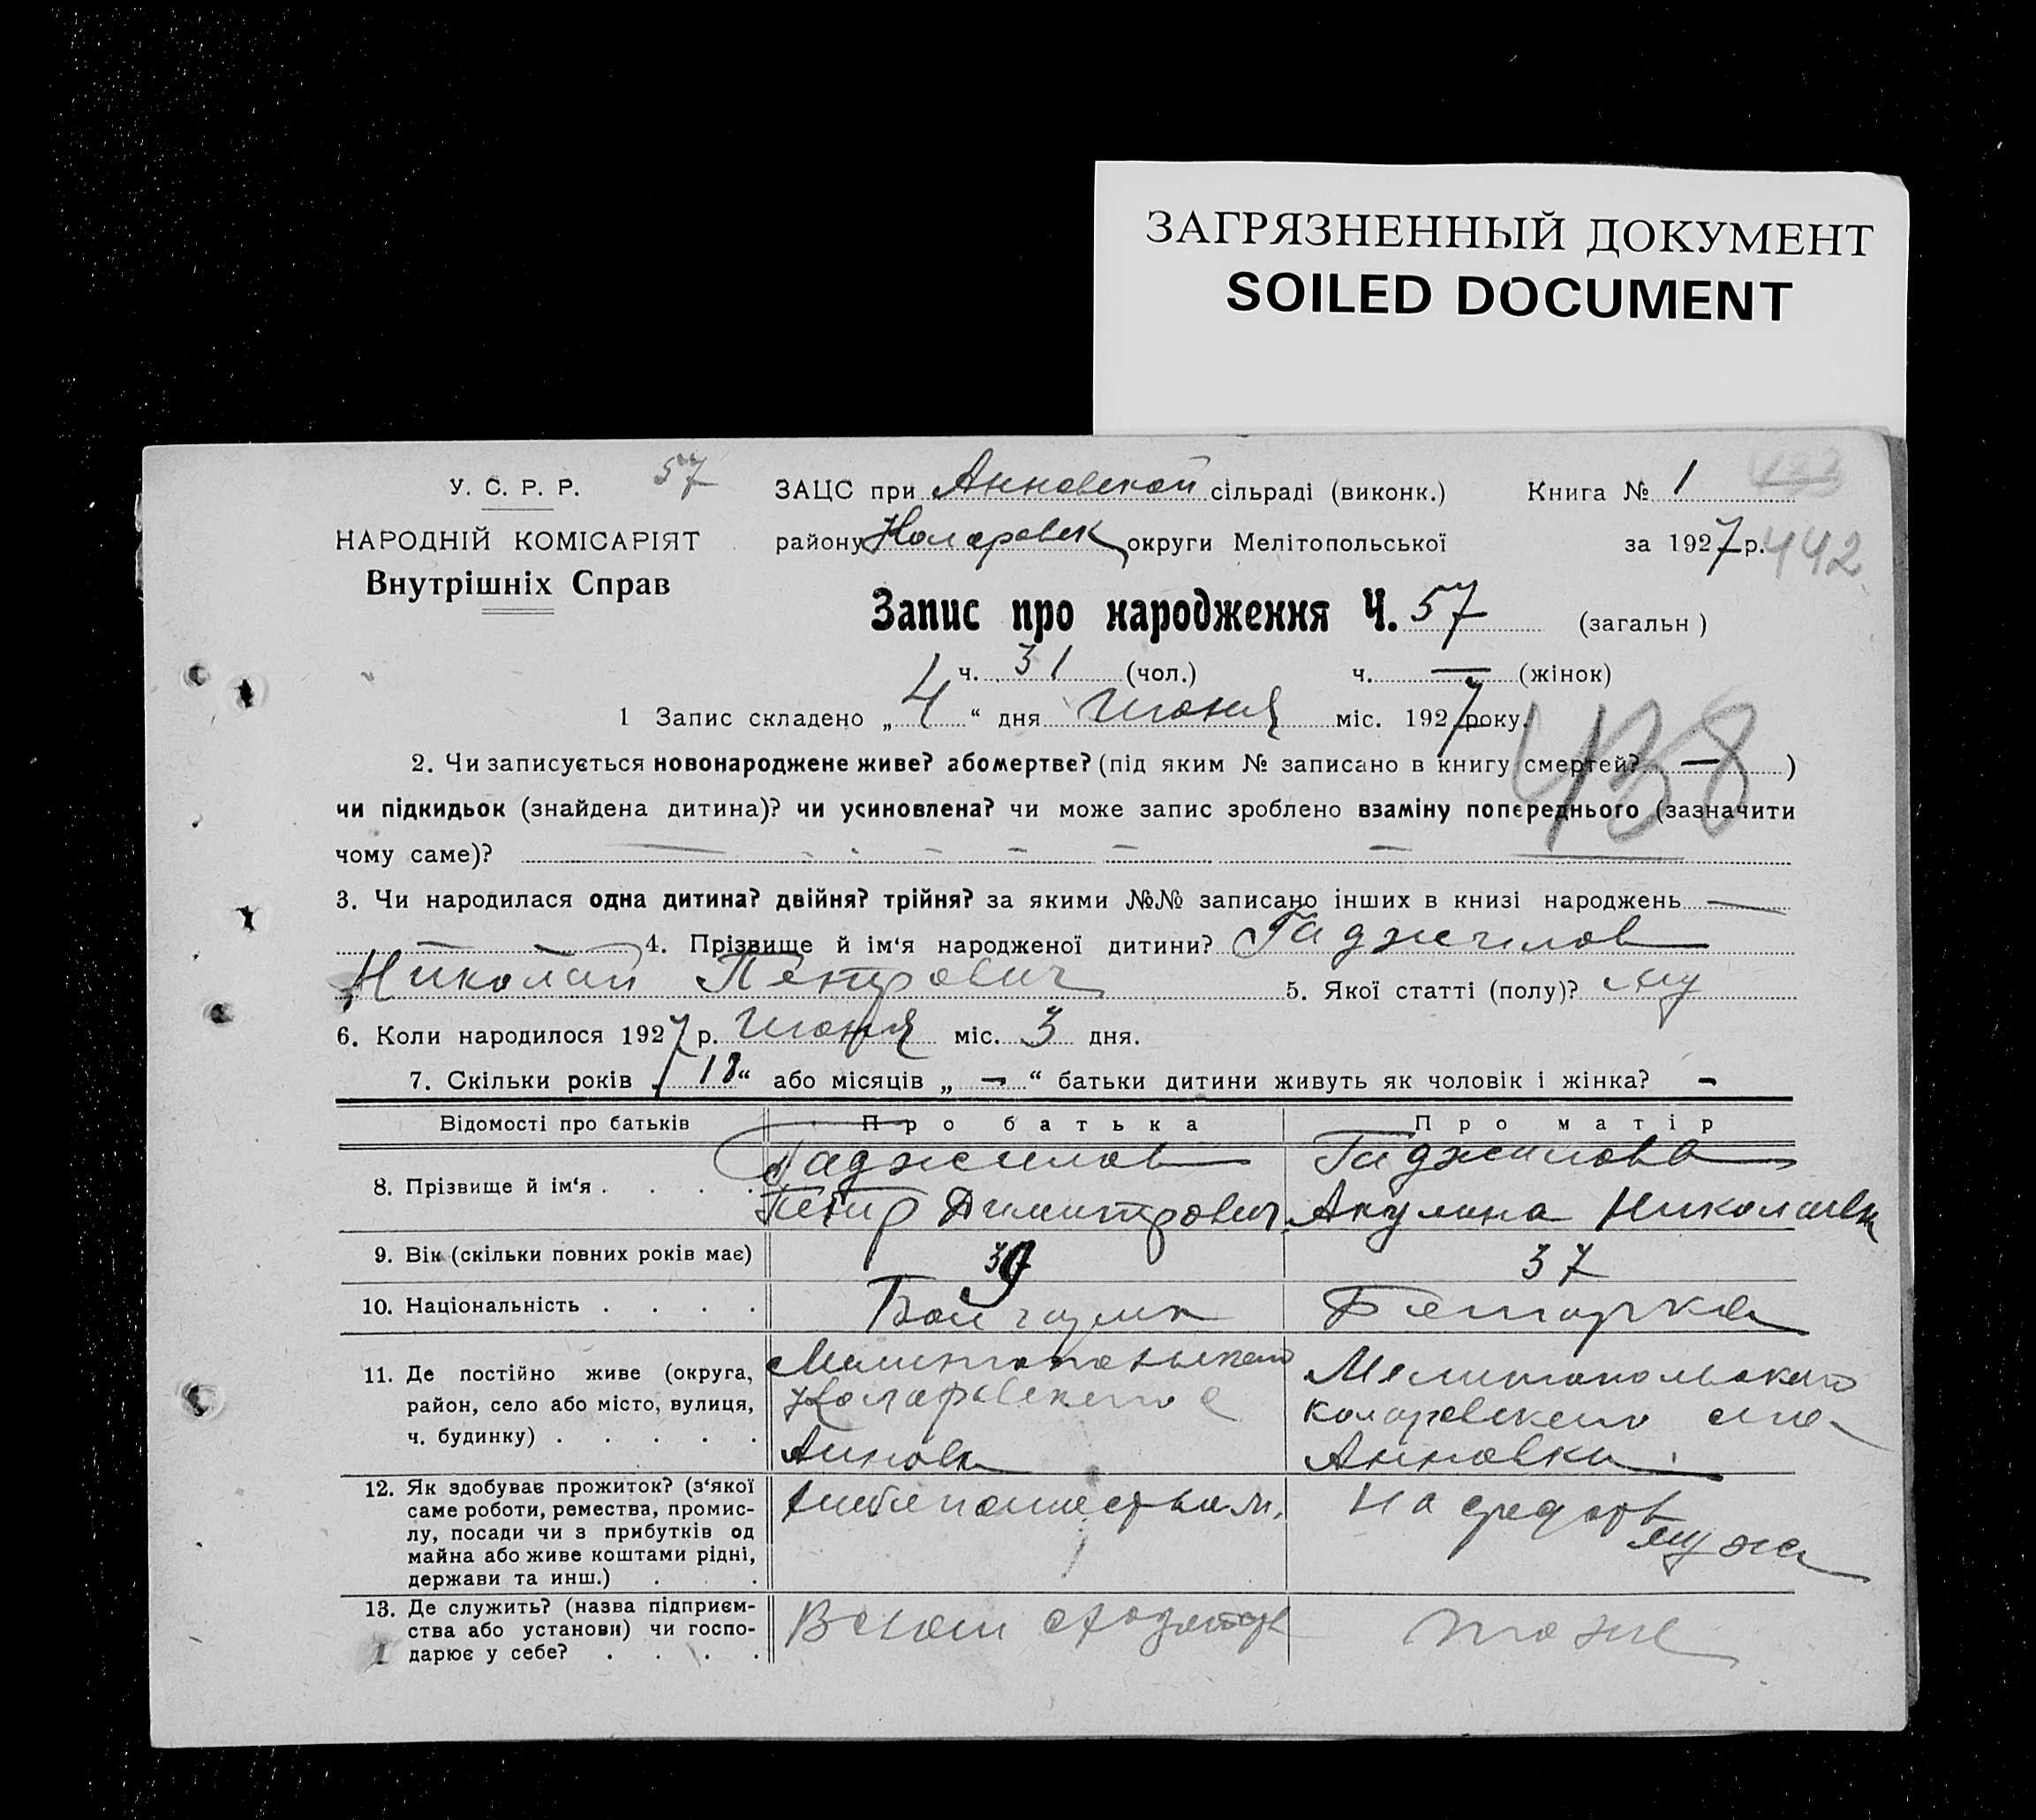 ЗАГРЯЗНЕННЫЙ ДОКУМЕНТ
SOILED DOCUMENT
У. С. Р. Р. 57
НАРОДНІЙ КОМІСАРІЯТ
Внутрішніх Справ
ЗАЦС при Анновской сільраді (виконк.) Книга № 1
району Коларовск округи Мелітопольської за 1927 р. 442
Запис про народження Ч. 57 (загальн)
ч. 31 (чол.) ч. — (жінок)
1 Запис складено „ 4 “ дня Июня міс. 1927 року.
438
2. Чи записується новонароджене живе? або мертве? (під яким № записано в книгу смертей? — )
чи підкидьок (знайдена дитина)? чи усиновлена? чи може запис зроблено взаміну попереднього (зазначити
чому саме)?
3. Чи народилася одна дитина? двійня? трійня? за якими №№ записано інших в книзі народжень —
4. Прізвище й ім‘я народженої дитини? Гаджилов
Николай Петрович 5. Якої статті (полу)? му
6. Коли народилося 1927 р. Июня міс. 3 дня.
7. Скільки років „ 18 “ або місяців „ — “ батьки дитини живуть як чоловік і жінка? —
Відомості про батьків Про батька Про матір
8. Прізвище й ім‘я . . . . Гаджилов Гаджилова
Петр Димитрович Акулина Николаевн
9. Вік (скільки повних років має) 39 37
10. Національність . . . .
11. Де постійно живе (округа, район, село або місто, вулиця, ч. будинку) . . . . .
Мелитопольского
Коларовского с
Анновк
Мелитопольского
Коларовского
Анновки
12. Як здобуває прожиток? (з‘якої саме роботи, ремества, промислу, посади чи з прибутків од майна або живе коштами рідні, держави та инш.) . . .
На средств
мужа
13. Де служить? (назва підприємства або установи) чи господарює у себе? . . . .
тоже